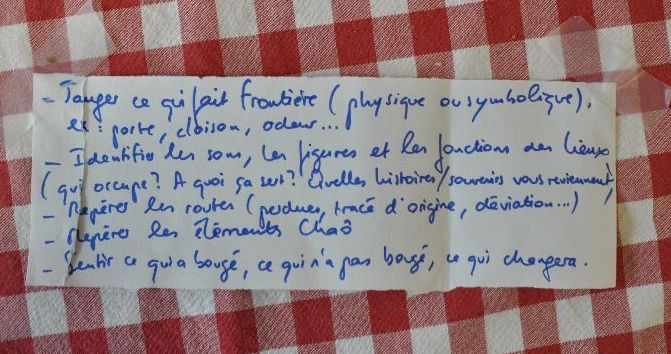 - Tanger ce qui fait frontière (physique ou symbolique),
ex : porte, cloison, odeur...
- Identifier les sons, les figures et les fonctions des lieux
(qui occupe ? A quoi ça sert ? Quelles histoires/souvenirs vous reviennent)
- Repérer les routes (perdues, tracé d'origine, déviation...)
- Repérer les éléments Chaô
- Sentir ce qui a bougé, ce qui n'a pas bougé, ce qui changera.